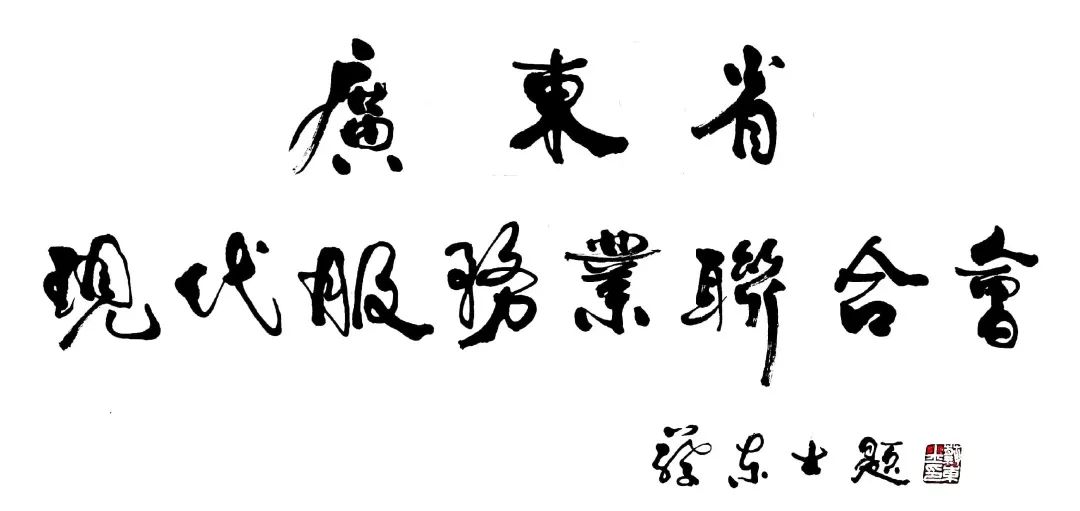 廣東省
現代服務業聯合會
蔡东士题